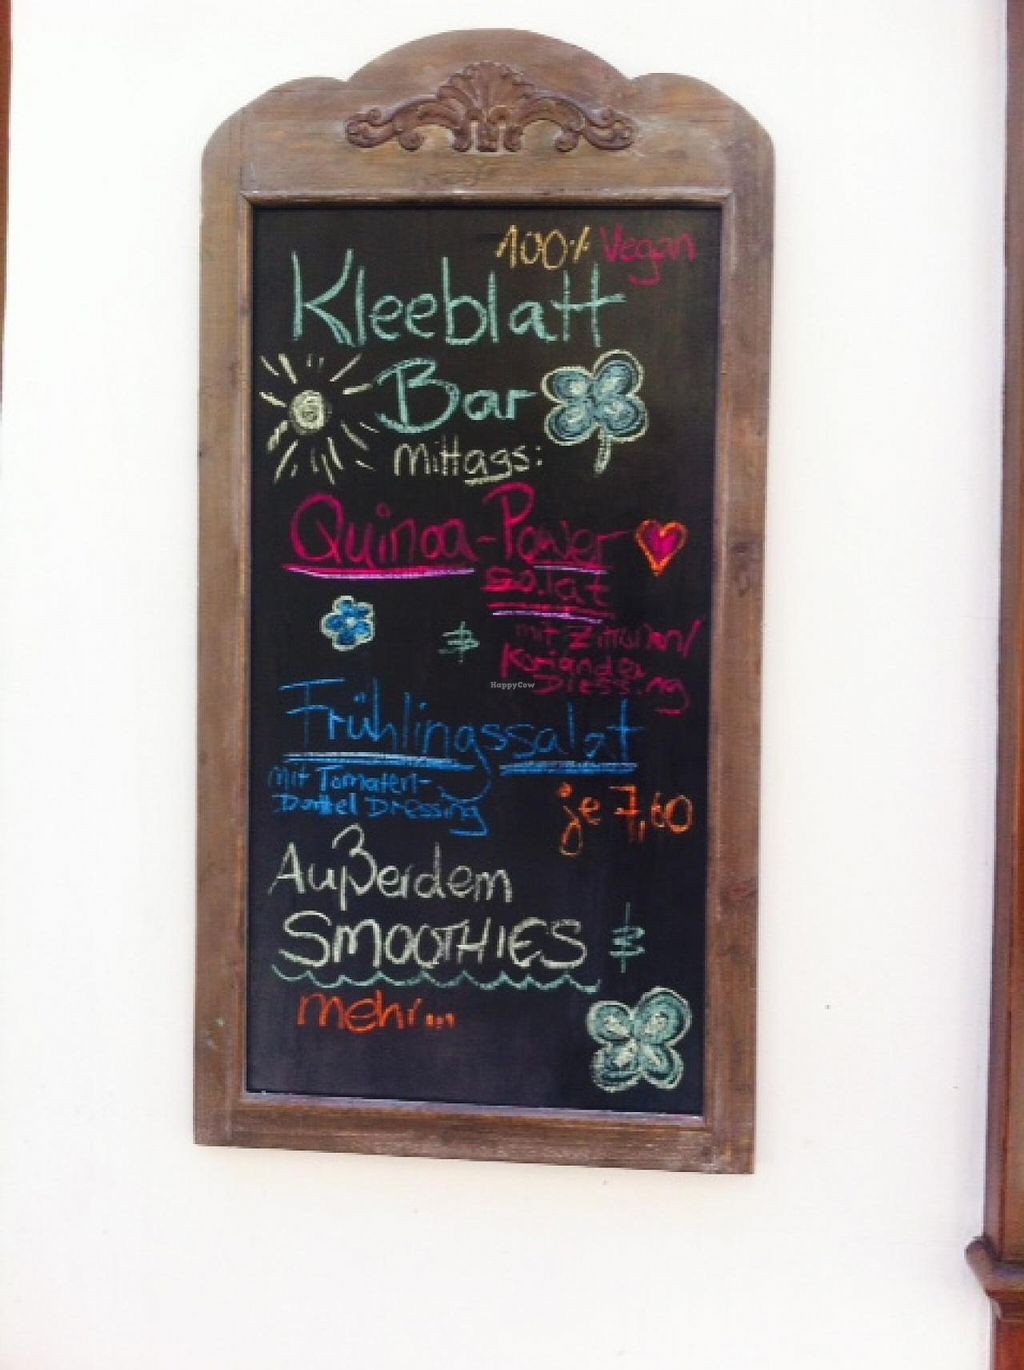 100% Vegan
Kleeblatt
Bar
Mittags:
Quinoa-Power
salat
&
mit Zitronen/
Koriander
Dressing
HappyCow
Frühlingssalat
mit Tomaten-
Dattel Dressing
je 7,60
Außerdem
SMOOTHIES &
mehr...